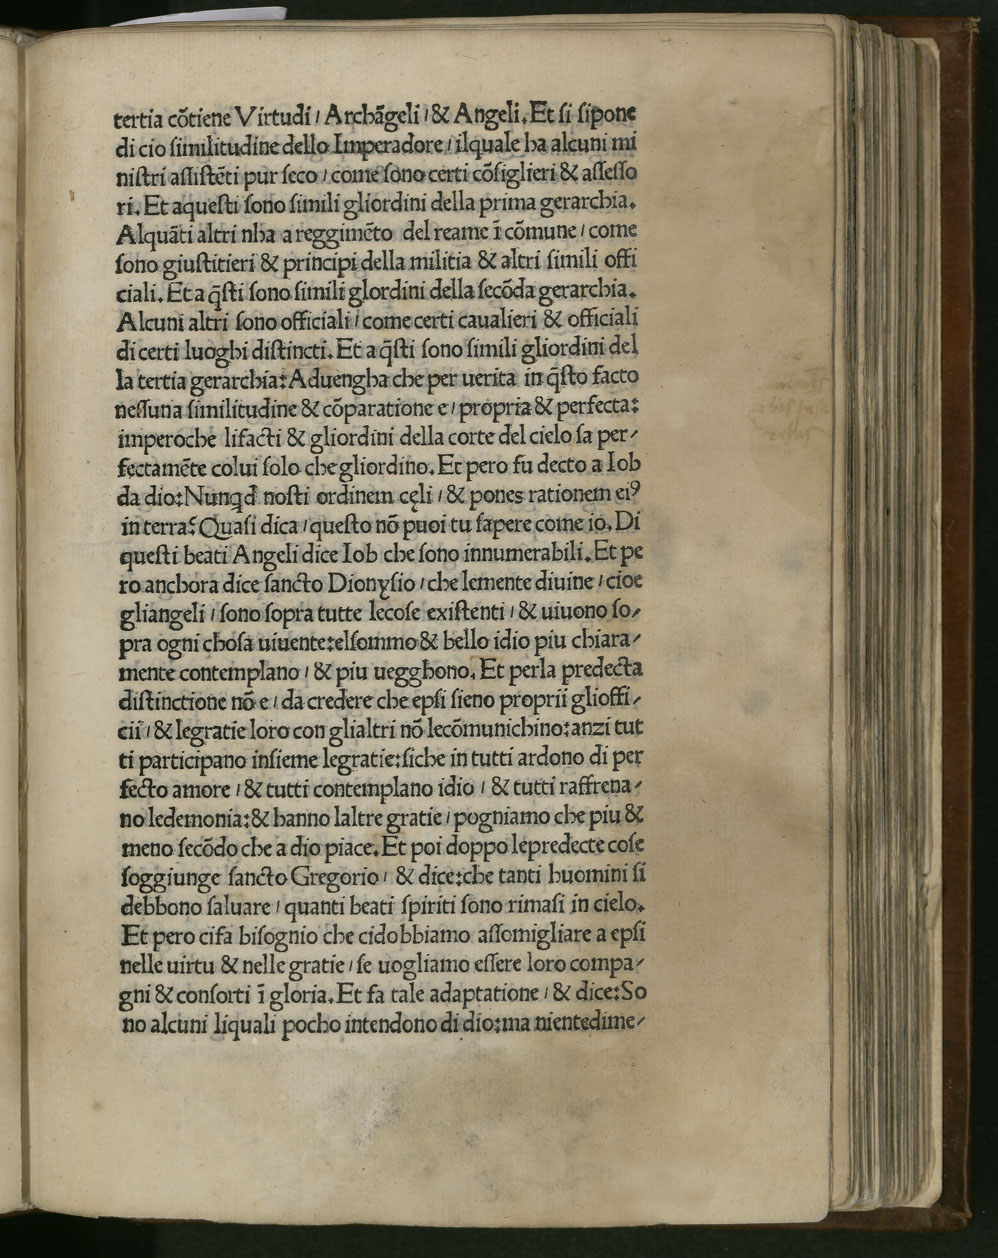 tertia cōtiene Virtudi / Archāgeli / & Angeli. Et si sipone
di cio ſimilitudine dello Imperadore / ilquale ha alcuni mi
niſtri aſſiſtēti pur ſeco / come ſono certi cōſiglieri & aſſeſſo
ri. Et aqueſti ſono ſimili gliordini della prima gerarchia.
Alquāti altri nha a reggimēto del reame ī cōmune / come
ſono giuſtitieri & principi della militia & altri ſimili offi
ciali. Et a q̄ſti ſono ſimili glordini della ſecōda gerarchia.
Alcuni altri ſono officiali / come certi caualieri & officiali
di certi luoghi diſtincti. Et a q̄ſti ſono ſimili gliordini del
la tertia gerarchia: Aduengha che per uerita in q̄ſto facto
neſſuna ſimilitudine & cōparatione e / propria & perfecta:
imperoche lifacti & gliordini della corte del cielo ſa per⸗
fectamēte colui ſolo che gliordino. Et pero fu decto a Iob
da dio: Nunqd noſti ordinem cęli / & pones rationem eiꝰ
in terra? Quaſi dica / queſto nō puoi tu ſapere come io. Di
queſti beati Angeli dice Iob che ſono innumerabili. Et pe
ro anchora dice ſancto Dionyſio / che lemente diuine / cioe
gliangeli / ſono ſopra tutte lecoſe exiſtenti / & uiuono ſo⸗
pra ogni choſa uiuente: elſommo & bello idio piu chiara⸗
mente contemplano / & piu uegghono. Et perla predecta
diſtinctione nō e / da credere che epſi ſieno proprii glioffi⸗
cii / & legratie loro con glialtri nō lecōmunichino: anzi tut
ti participano inſieme legratie: ſiche in tutti ardono di per
fecto amore / & tutti contemplano idio / & tutti raffrena⸗
no ledemonia: & hanno laltre gratie / pogniamo che piu &
meno ſecōdo che a dio piace. Et poi doppo lepredecte coſe
ſoggiunge ſancto Gregorio / & dice: che tanti huomini ſi
debbono ſaluare / quanti beati ſpiriti ſono rimaſi in cielo.
Et pero cifa biſognio che cidobbiamo aſſomigliare a epſi
nelle uirtu & nelle gratie / ſe uogliamo eſſere loro compa⸗
gni & conſorti ī gloria. Et fa tale adaptatione / & dice: So
no alcuni liquali pocho intendono di dio: ma nientedime⸗